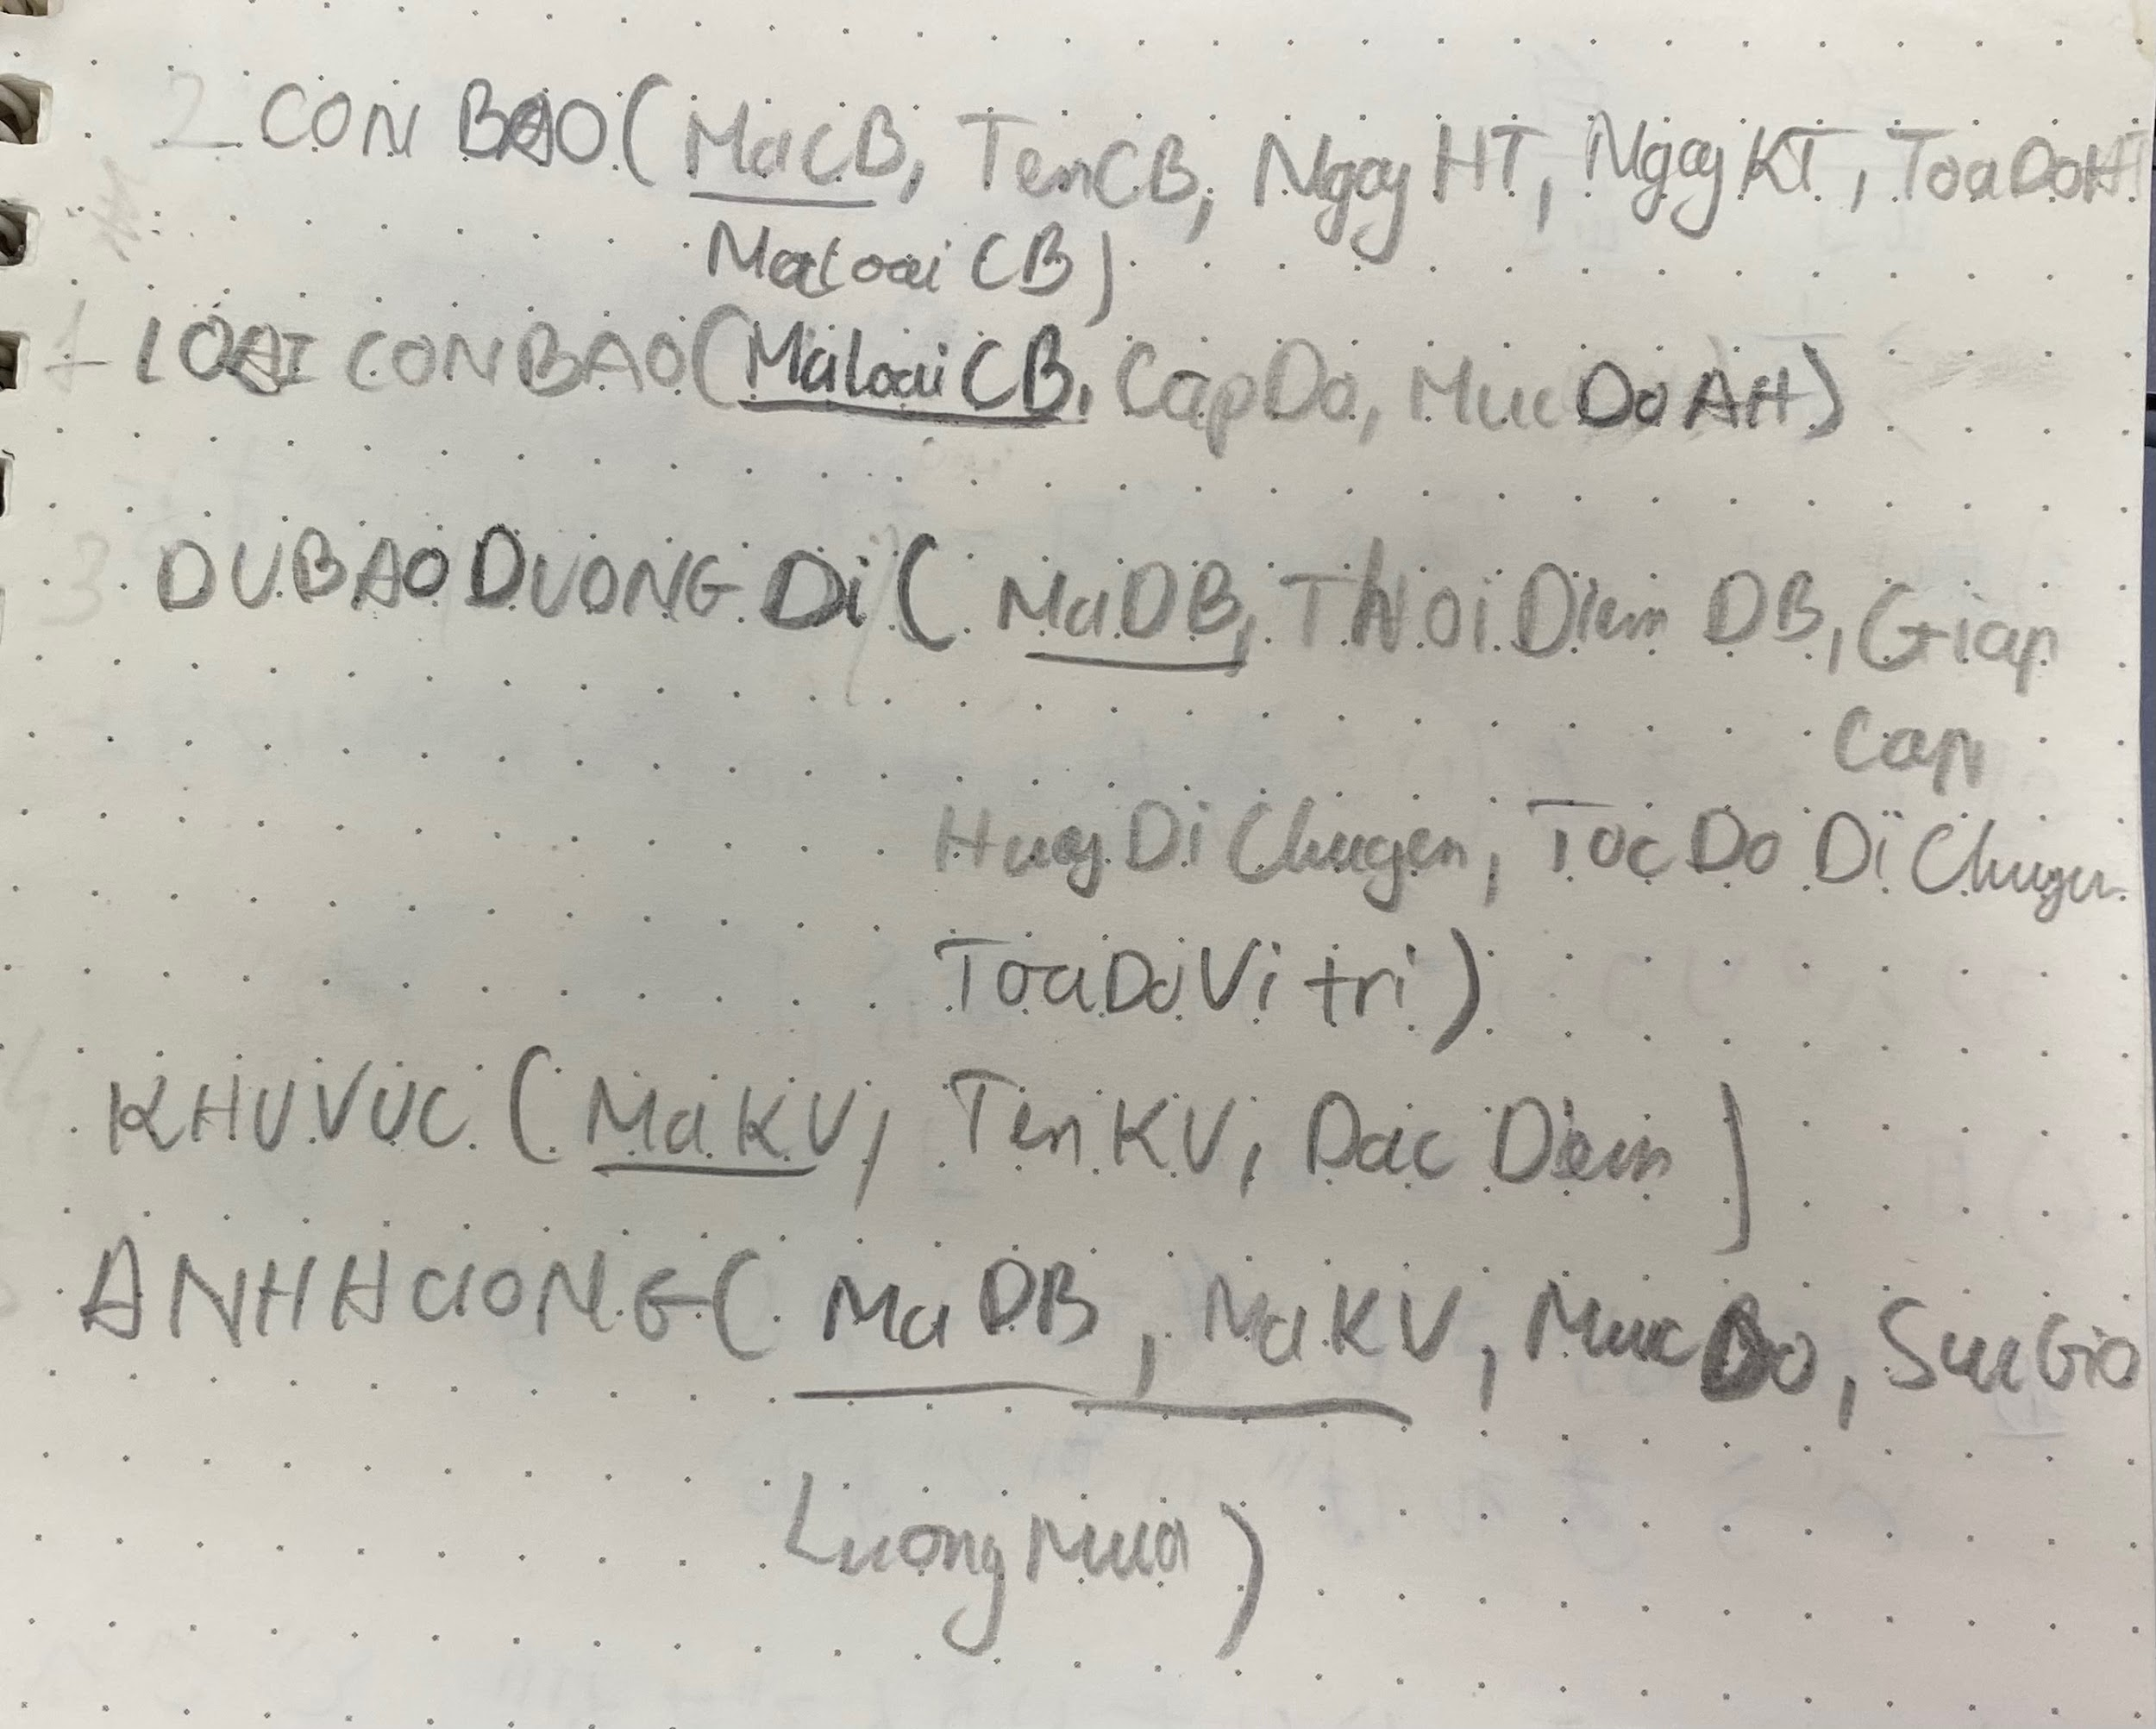 2 CONBAO(MaCB, TenCB, NgayHT, NgayKT, ToaDoHT
MaLoaiCB)
1 LOAICONBAO(MaLoaiCB, CapDo, MucDoAH)
3 DUBAODUONGDi(MaDB, ThoiDiemDB, Giap
Cap
HuogDiChuyen, TocDoDiChuyen
ToaDoVitri)
KHUVUC(MaKV, TenKV, DacDiem)
ANHHUONG(MaDB, MaKV, MucDo, SucGio
LuongMua)